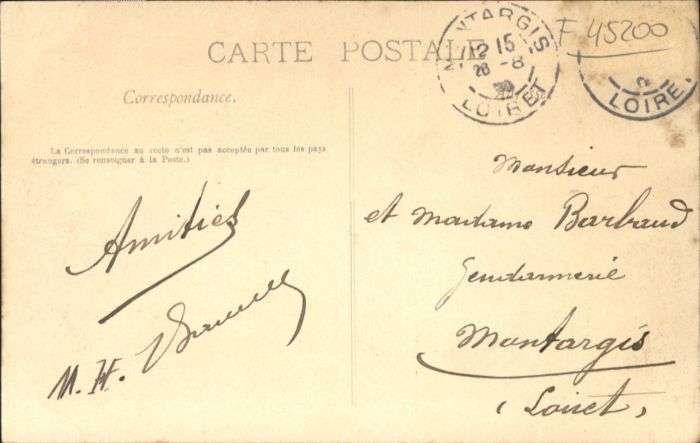 CARTE POSTALE
MONTARGIS
12 15
28 -8
LOIRET
F 45200
LOIRE
Correspondance.
La Correspondance au recto n'est pas acceptée par tous les pays
étrangers. (Se renseigner à la Poste.)
Amitiés
M. H.
Monsieur
et madame Barbaud
Gendarmerie
Montargis
(Loiret)